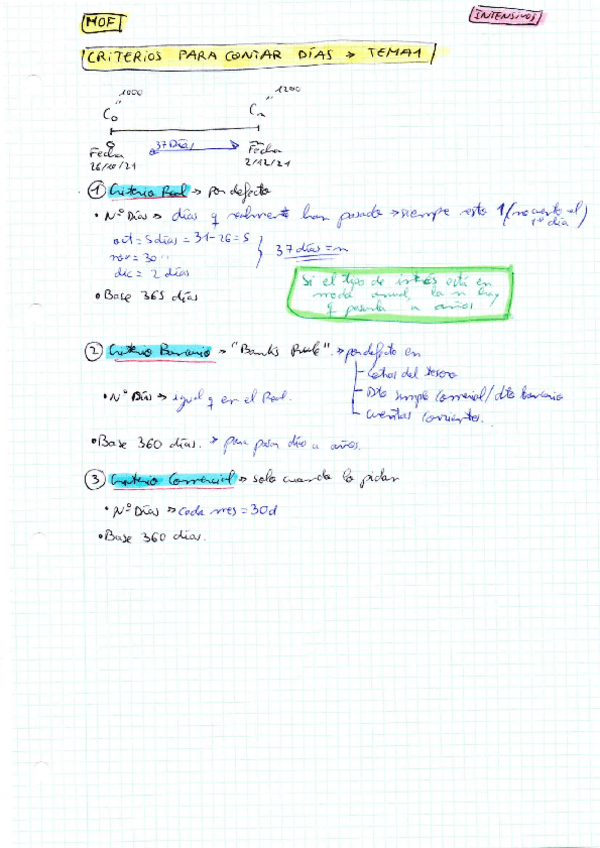 MOF
INTENSIVOS
CRITERIOS PARA CONTAR DÍAS → TEMA 1
1000
1200
C₀
Cₙ
37 Días
Fecha
Fecha
26/10/21
2/12/21
① Criterio Real → por defecto
• Nº Días → días q realmente han pasado → siempre resto 1 (no cuento el 1º día)
oct = 5 días = 31-26 = 5
nov = 30 "
37 días = n
dic = 2 días
• Base 365 días
Si el tipo de interés está en
modal anual, la n hay
q pasarla a años
② Criterio Bancario → "Banks Rule" → por defecto en
Letras del Tesoro
• Nº Días → igual q en el Real.
Dto simple Comercial/dto bancario
Cuentas Corrientes.
• Base 360 días. → para pasar días a años.
③ Criterio Comercial → solo cuando lo pidan
• Nº Días → cada mes = 30d
• Base 360 días.